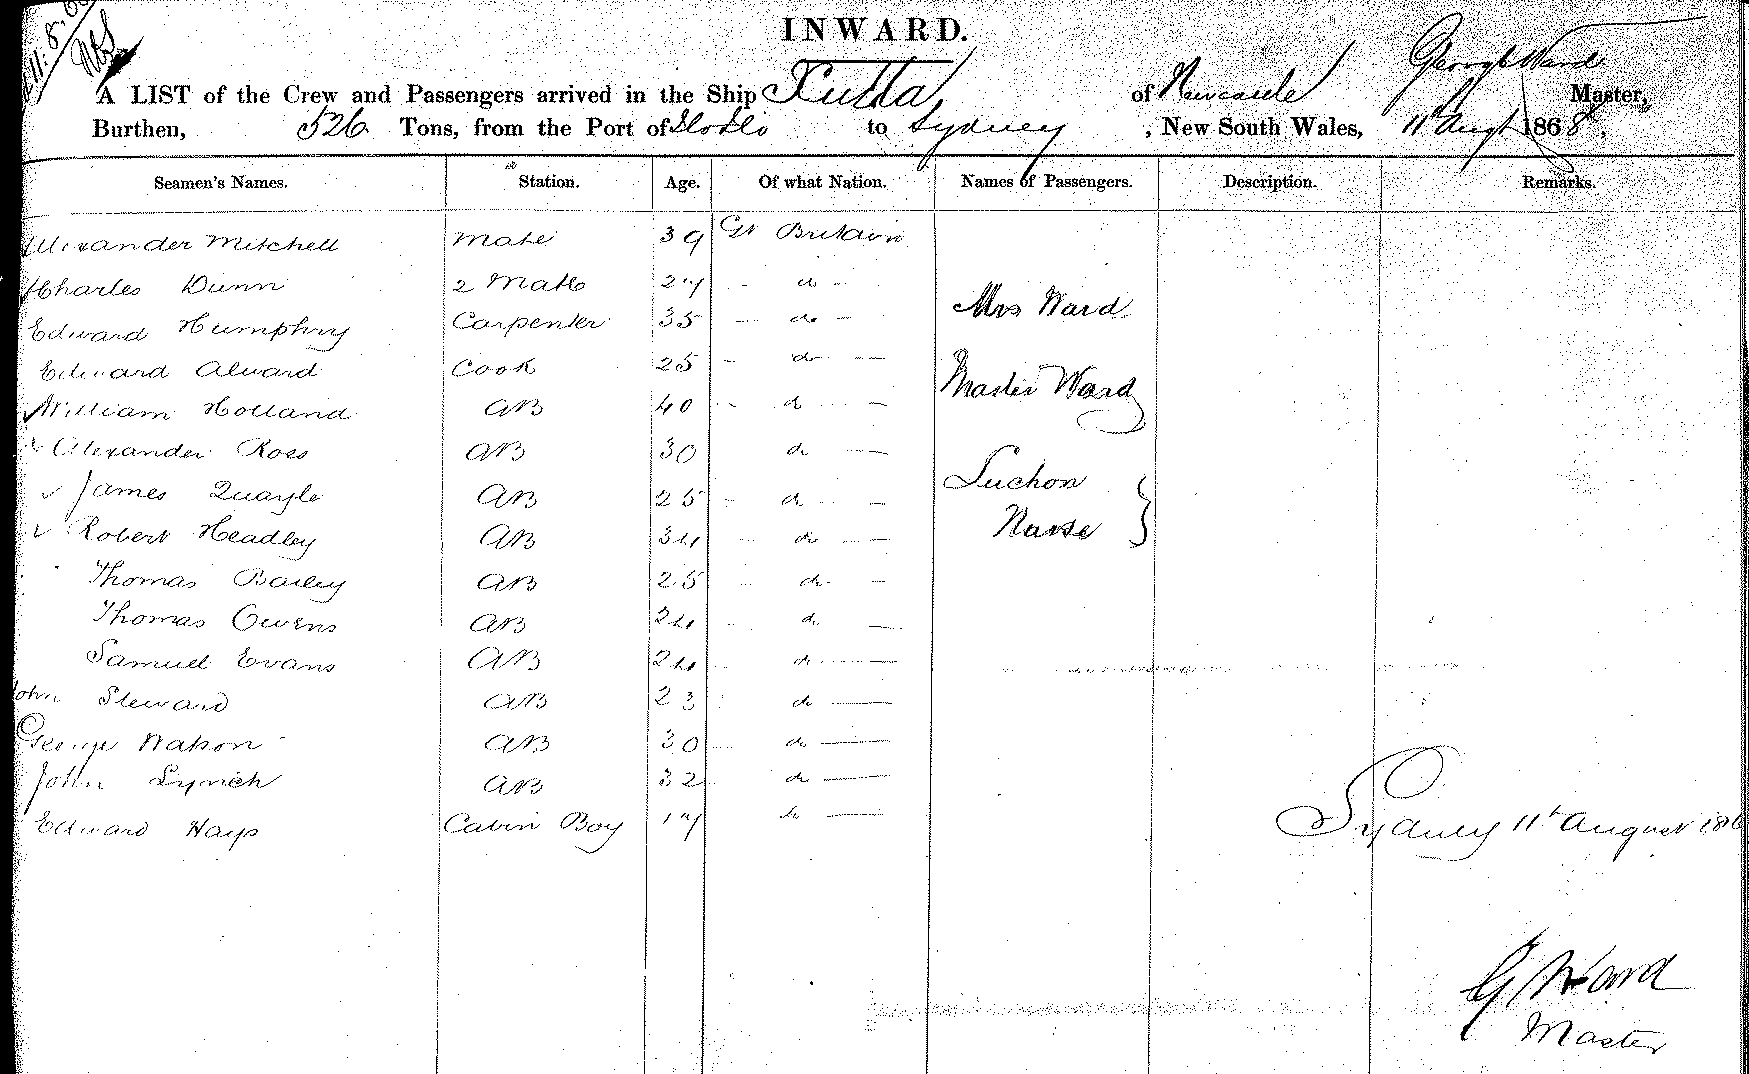 11.8.68
INWARD.
George Ward
A LIST of the Crew and Passengers arrived in the Ship of Newcastle Master,
Burthen, 526 Tons, from the Port of Iloilo to Sydney, New South Wales, 11 Augt 1868.
Seamen's Names. Station. Age. Of what Nation. Names of Passengers. Description. Remarks.
Alexander Mitchell Mate 39 Gt Britain
Charles Dunn 2 Mate 27 do
Mrs Ward
Edward Humphry Carpenter 35 do
Edward Alward Cook 25 do
Master Ward
William Holland AB 40 do
Alexander Ross AB 30 do
Luchon
James Quayle AB 25 do
Robert Headley AB 34 do
Nurse
Thomas Bailey AB 25 do
Thomas Owens AB 24 do
Samuel Evans AB 24 do
John Steward AB 23 do
George Watson AB 30 do
John Lynch AB 32 do
Edward Hays Cabin Boy 17 do
Sydney 11th August 186
G Ward
Master